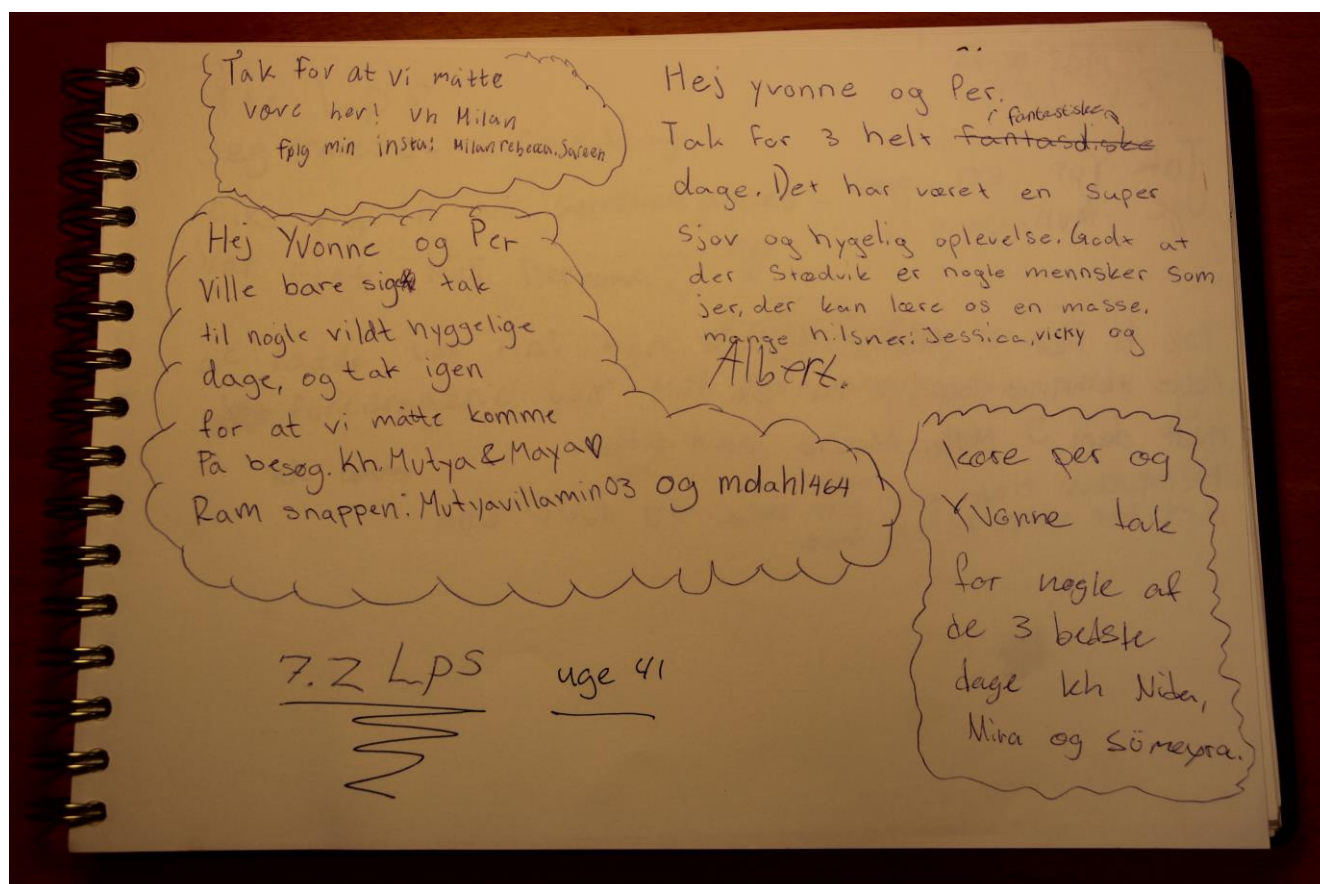 Tak for at vi måtte
være her! Vh Milan
følg min insta: Milanrebecca.Sareen
Hej Yvonne og Per
Ville bare sige tak
til nogle vildt hyggelige
dage, og tak igen
for at vi måtte komme
På besøg. Kh. Mutya & Maya♡
Ram snappen: Mutyavillamin03 og mdahl464
7.Z Lps
uge 41
Hej yvonne og Per.
fantastiske
Tak for 3 helt fantasdiske
dage. Det har været en super
sjov og hygelig oplevelse. Godt at
der Stædvik er nogle mennsker som
jer, der kan lære os en masse.
mange hilsner: Jessica, vicky og
Albert.
kære per og
Yvonne tak
for nogle af
de 3 bedste
dage kh Nida,
Mira og Sömeyra.